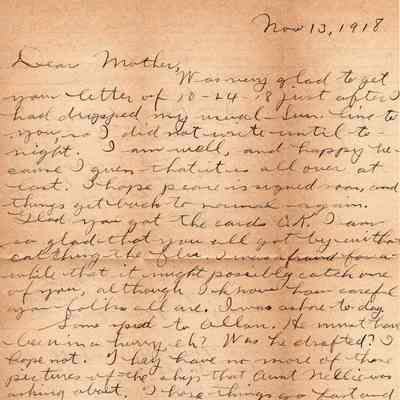 Nov 13, 1918
Dear Mother,
Was very glad to get
your letter of 10-24-18 just after I
had dropped my usual Sun. line to
you, so I did not write until to-
night. I am well, and happy be-
cause I guess that it is all over at
last. I hope peace is signed soon, and
things get back to normal again.
Glad you got the cards O.K. I am
so glad that you all got by without
catching the flu. I was afraid for a
while that it might possibly catch one
of you, although I know how careful
you folks all are. I was ashore to-day.
Some speed to Allan. He must have
been in a hurry, eh? Was he drafted? I
hope not. They have no more of those
pictures of the ship that Aunt Nellie was
asking about. I have things so fast and